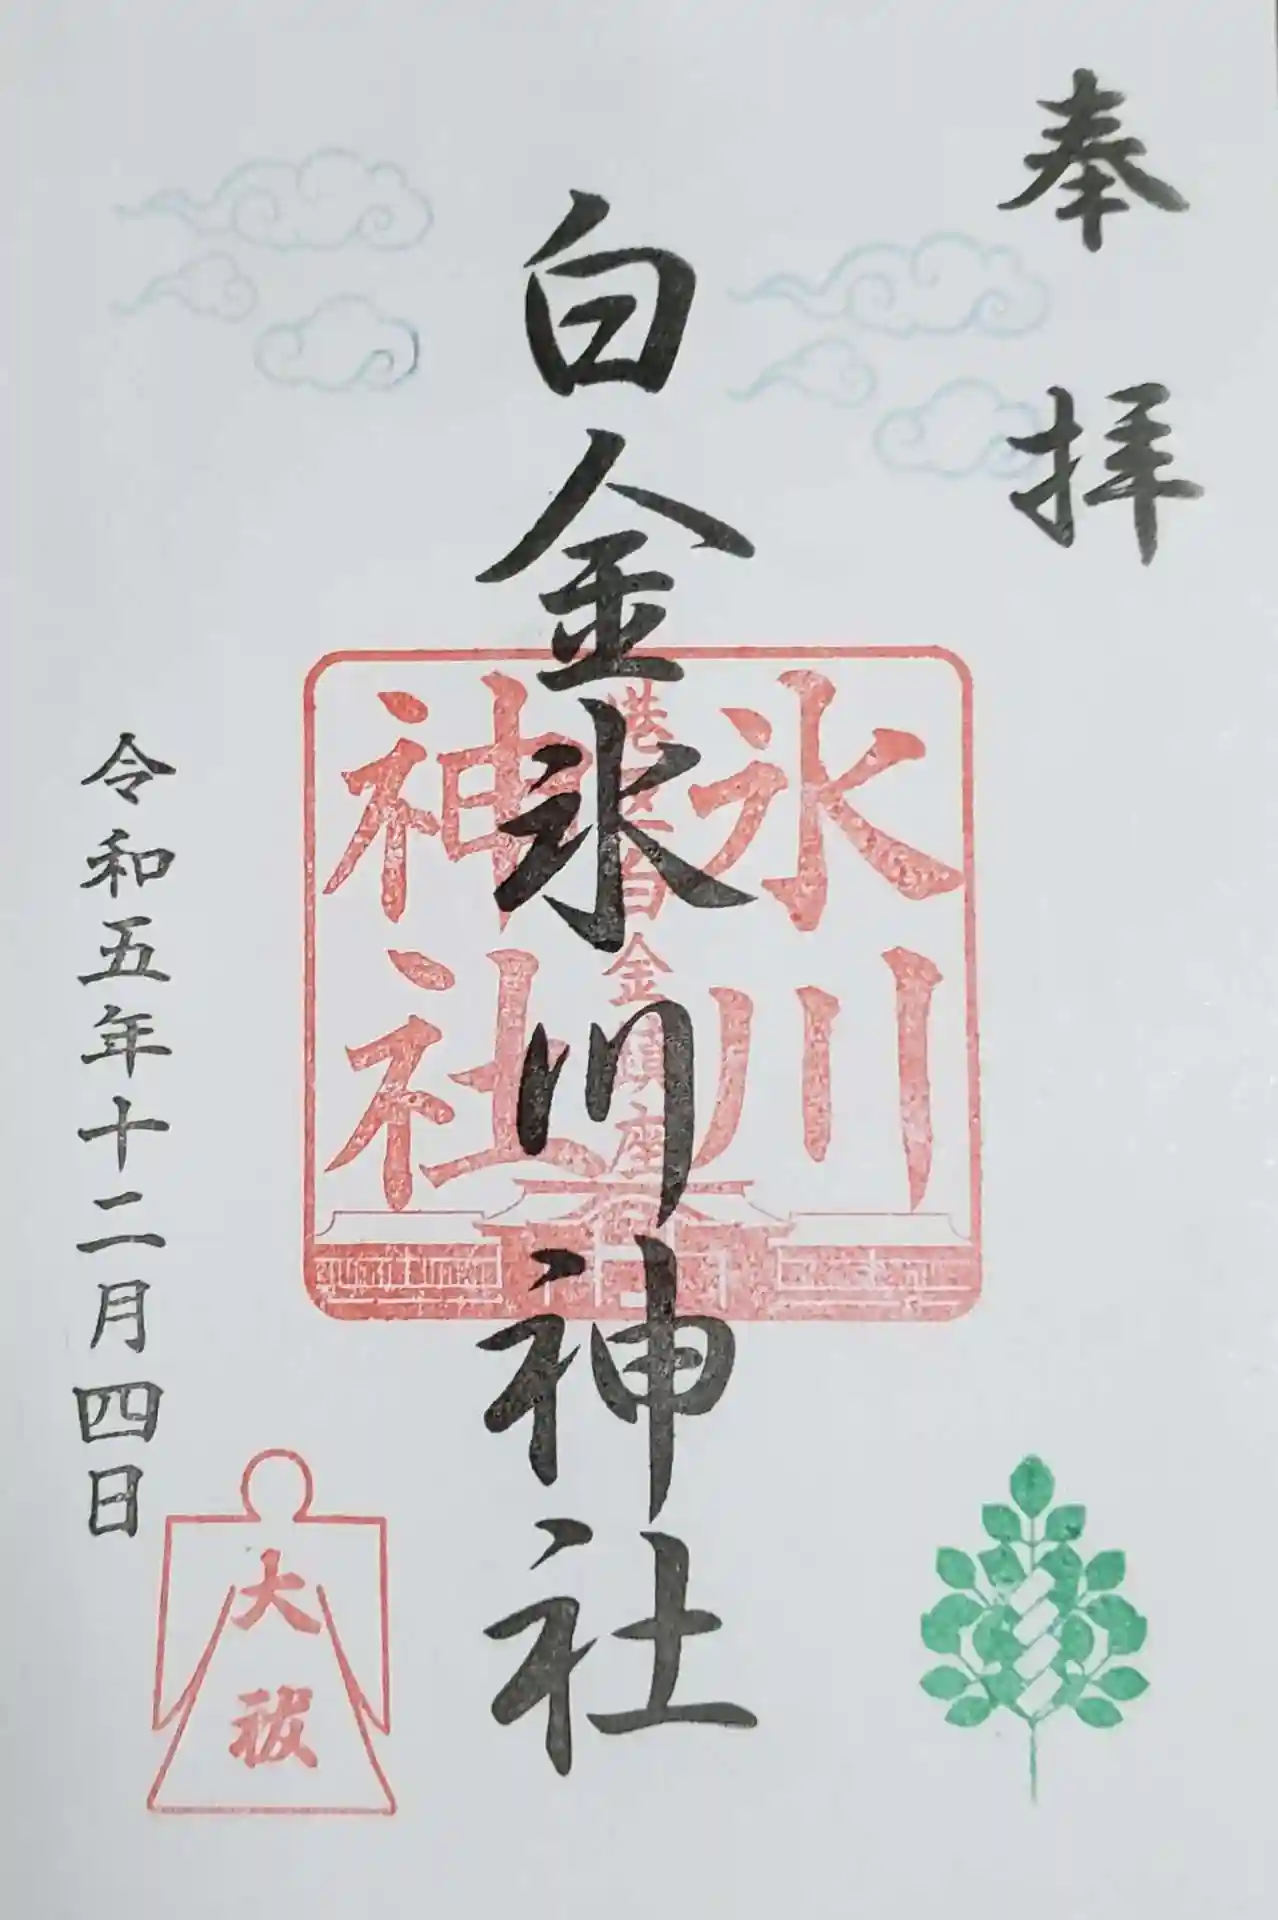 奉拝
白金氷川神社
氷川
港区白金鎮座
神社
令和五年十二月四日
大祓